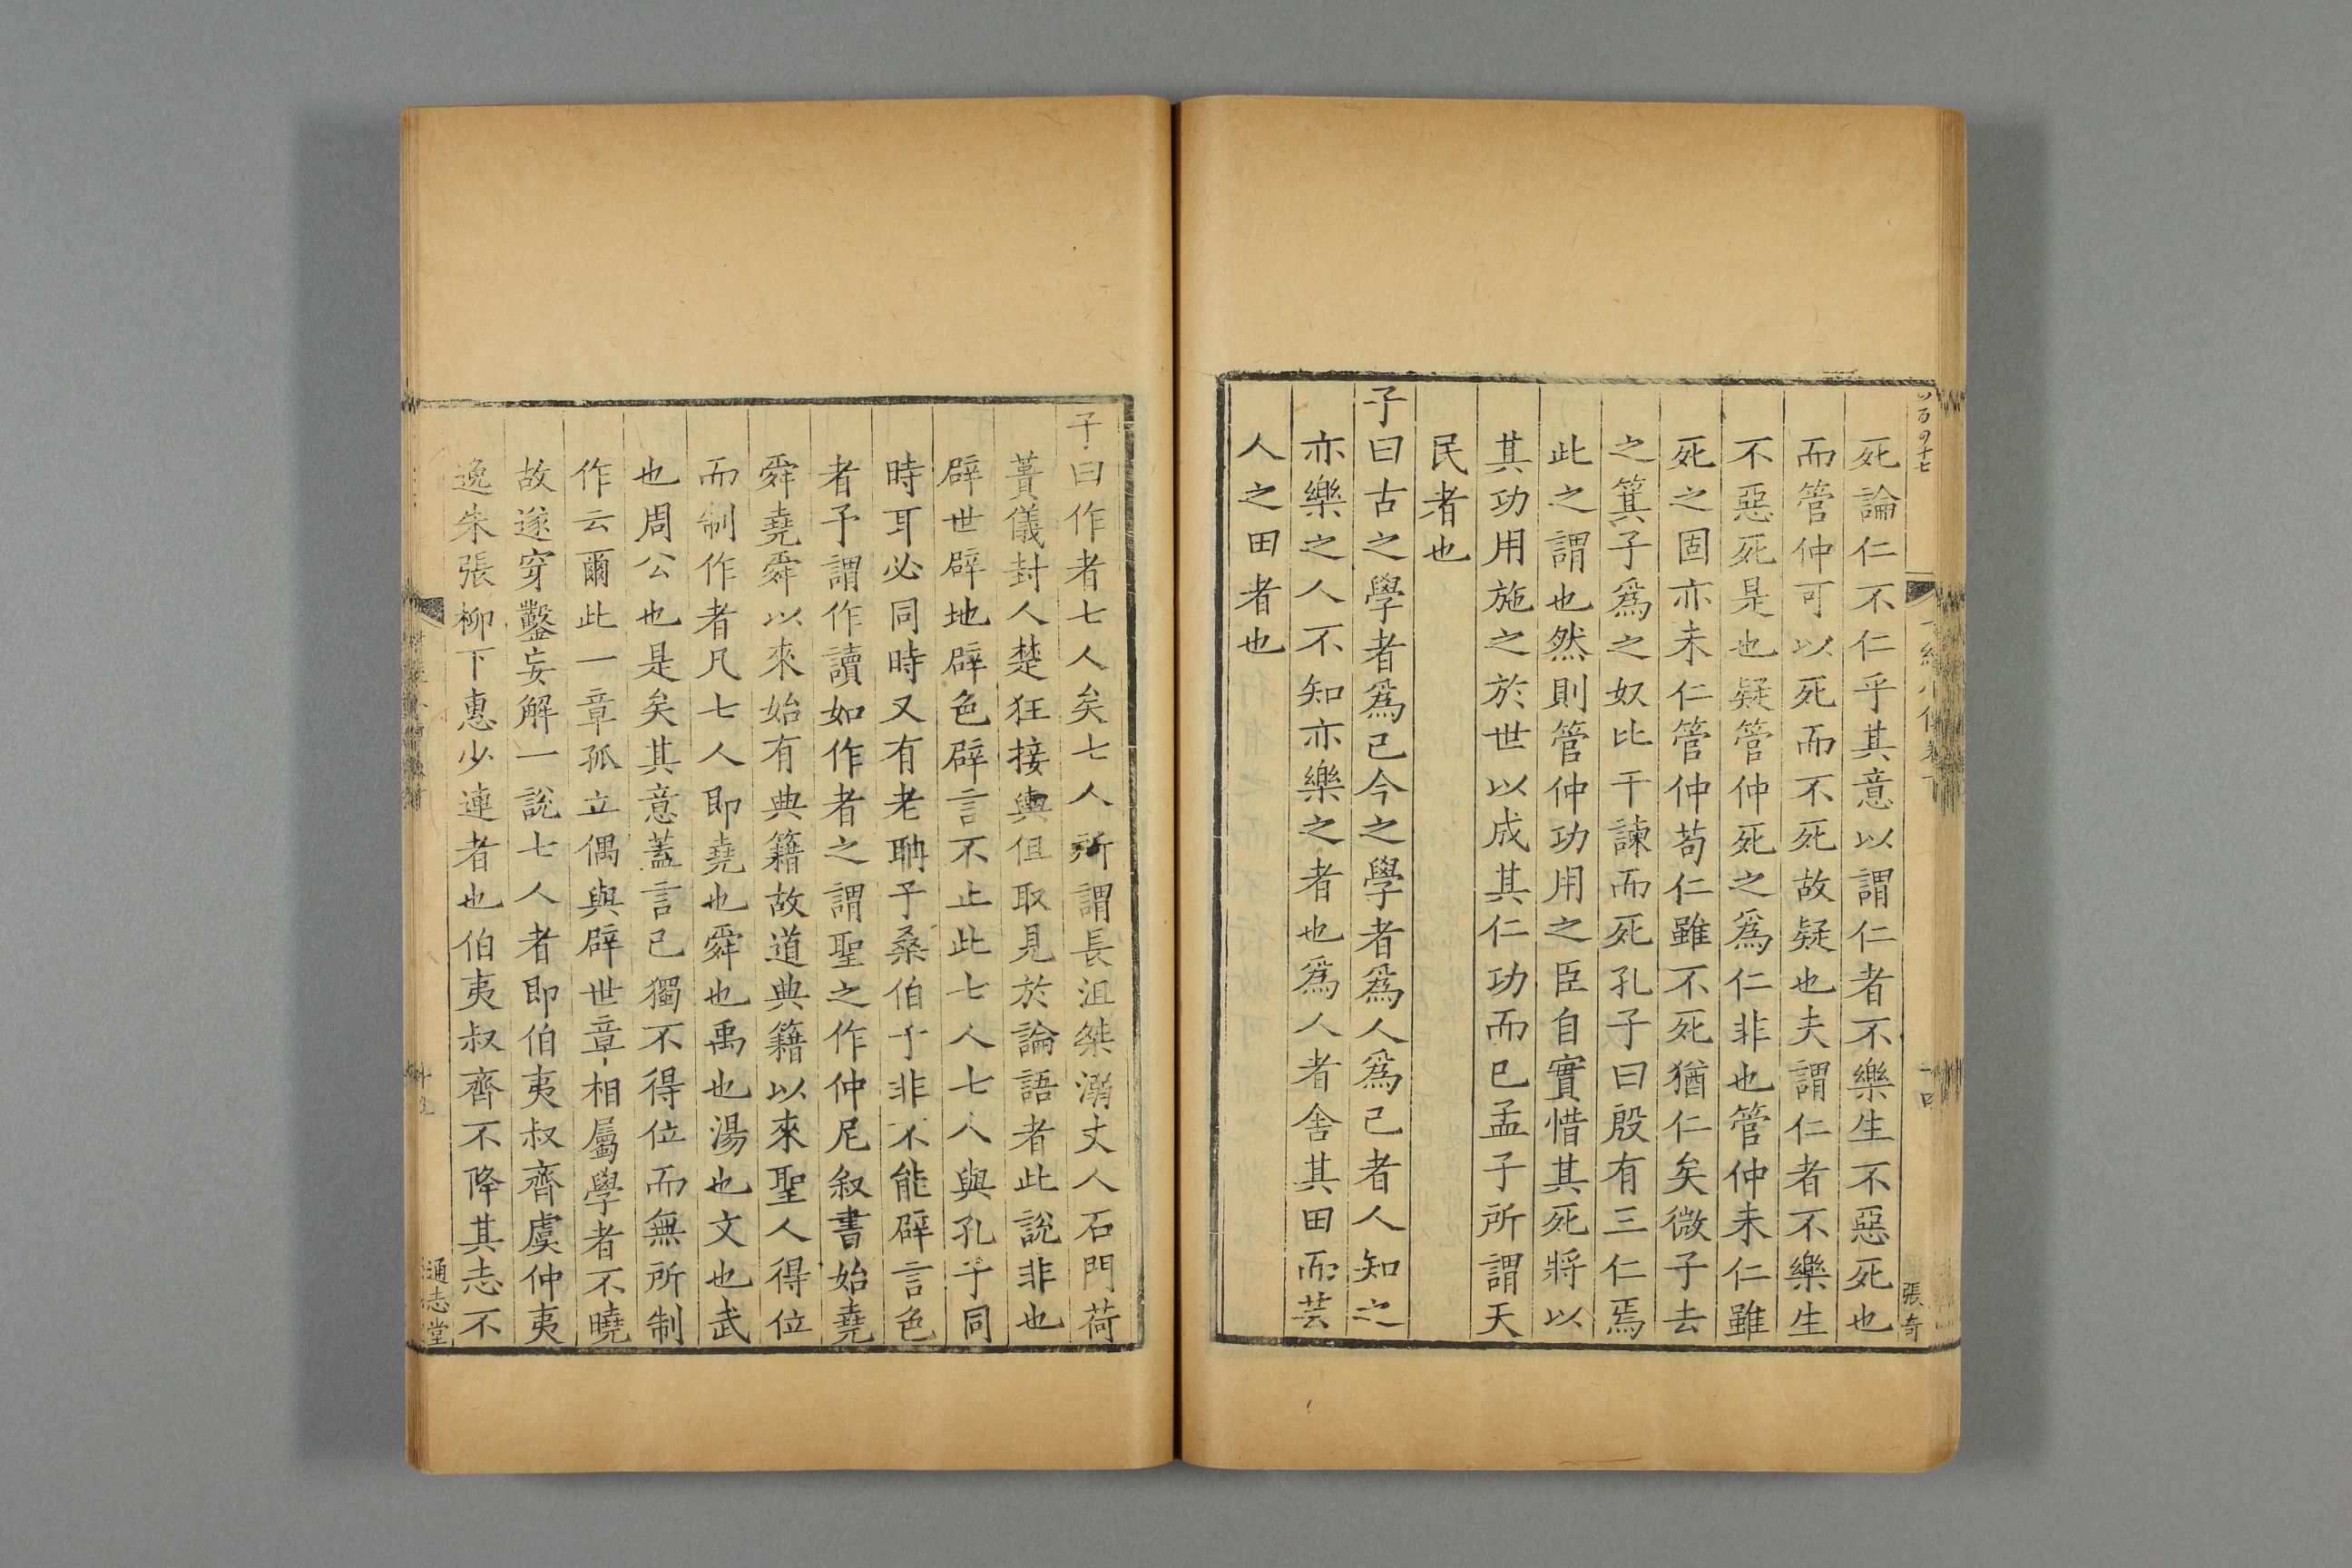 死論仁不仁乎其意以謂仁者不樂生不惡死也
而管仲可以死而不死故疑也夫謂仁者不樂生
不惡死是也疑管仲死之爲仁非也管仲未仁雖
死之固亦未仁管仲苟仁雖不死猶仁矣微子去
之箕子爲之奴比干諫而死孔子曰殷有三仁焉
此之謂也然則管仲功用之臣自實惜其死將以
其功用施之於世以成其仁功而已孟子所謂天
民者也
子曰古之學者爲己今之學者爲人爲己者人知之
亦樂之人不知亦樂之者也爲人者舍其田而芸
人之田者也
張奇
子曰作者七人矣七人所謂長沮桀溺丈人石門荷
蕢儀封人楚狂接輿但取見於論語者此說非也
辟世辟地辟色辟言不止此七人七人與孔子同
時耳必同時又有老聃子桑伯子非不能辟言色
者予謂作讀如作者之謂聖之作仲尼叙書始堯
舜堯舜以來始有典籍故道典籍以來聖人得位
而制作者凡七人即堯也舜也禹也湯也文也武
也周公也是矣其意蓋言己獨不得位而無所制
作云爾此一章孤立偶與辟世章相屬學者不曉
故遂穿鑿妄解一說七人者即伯夷叔齊虞仲夷
逸朱張柳下惠少連者也伯夷叔齊不降其志不
通志堂